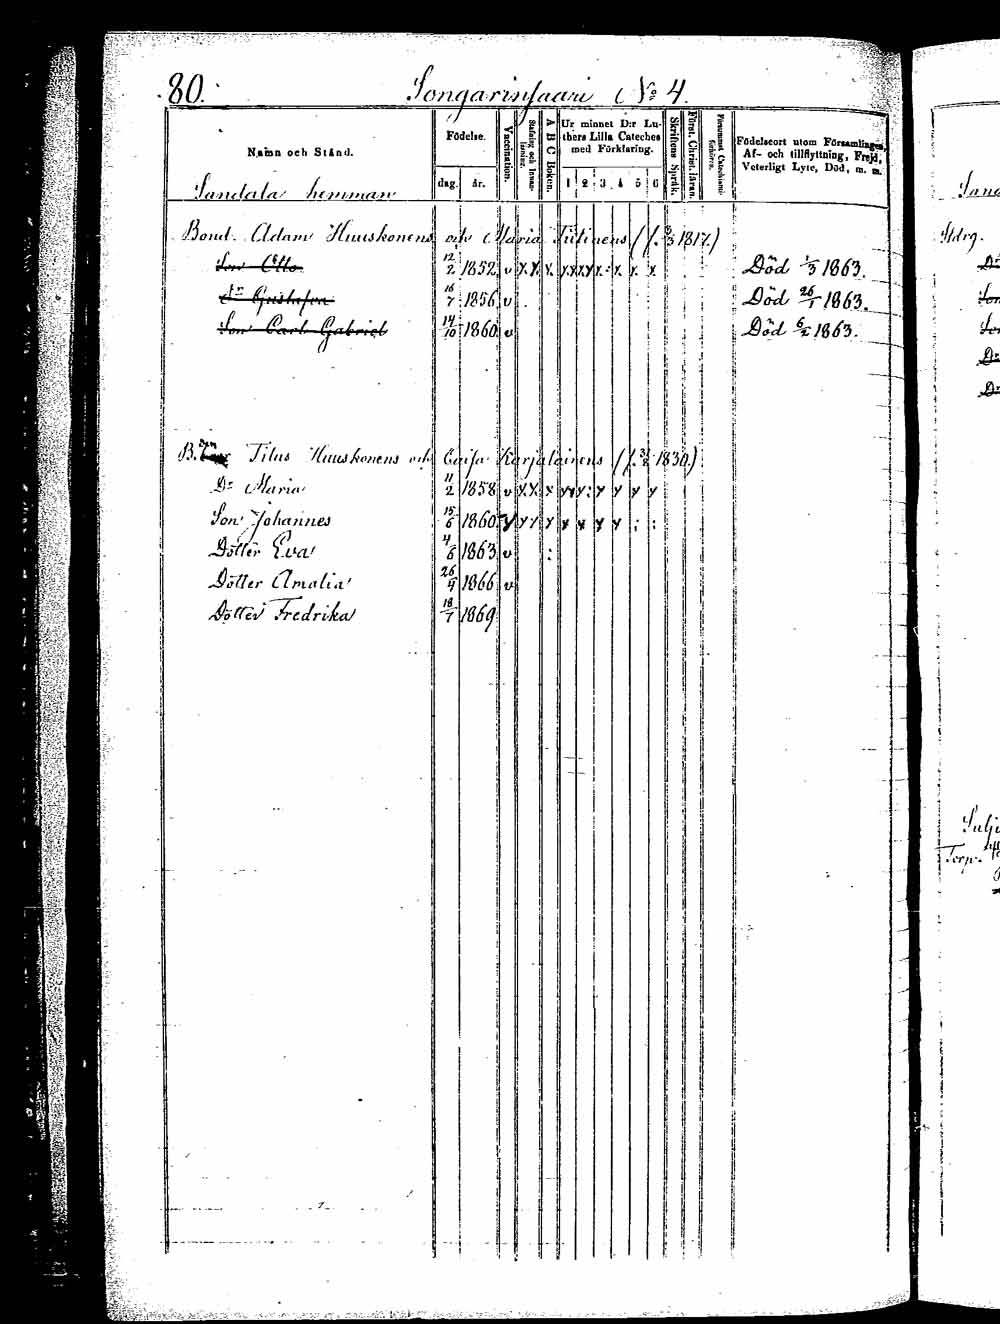 80. Songarinsaari No 4.
Namn och Stånd.
Födelse.
dag. år.
Vaccination.
Stafning och Innanläsning.
A B C Boken.
Ur minnet D:r Luthers Lilla Cateches med Förklaring.
1 2 3 4 5 6
Skriftens Språk.
Först. Christ. läran.
Födelseort utom Församlingen, Af- och tillflyttning, Frejd, Veterligt Lyte, Död, m. m.
Sandala hemman
Bond. Adam Huuskonens och Maria Tiitinens (f. 3/3 1817.)
Son Otto 12/2 1852 v x x x x x x x x x x Död 1/3 1863.
Dr Gustafva 16/7 1856 v Död 26/1 1863.
Son Carl Gabriel 14/10 1860 v Död 6/2 1863.
B. Titus Huuskonens och Caisa Karjalainens (f. 1830.)
Dr Maria 11/2 1858 v x x x
Son Johannes 15/6 1860
Dötter Eva 4/6 1863 v :
Dötter Amalia 26/4 1866 v
Dötter Fredrika 18/7 1869